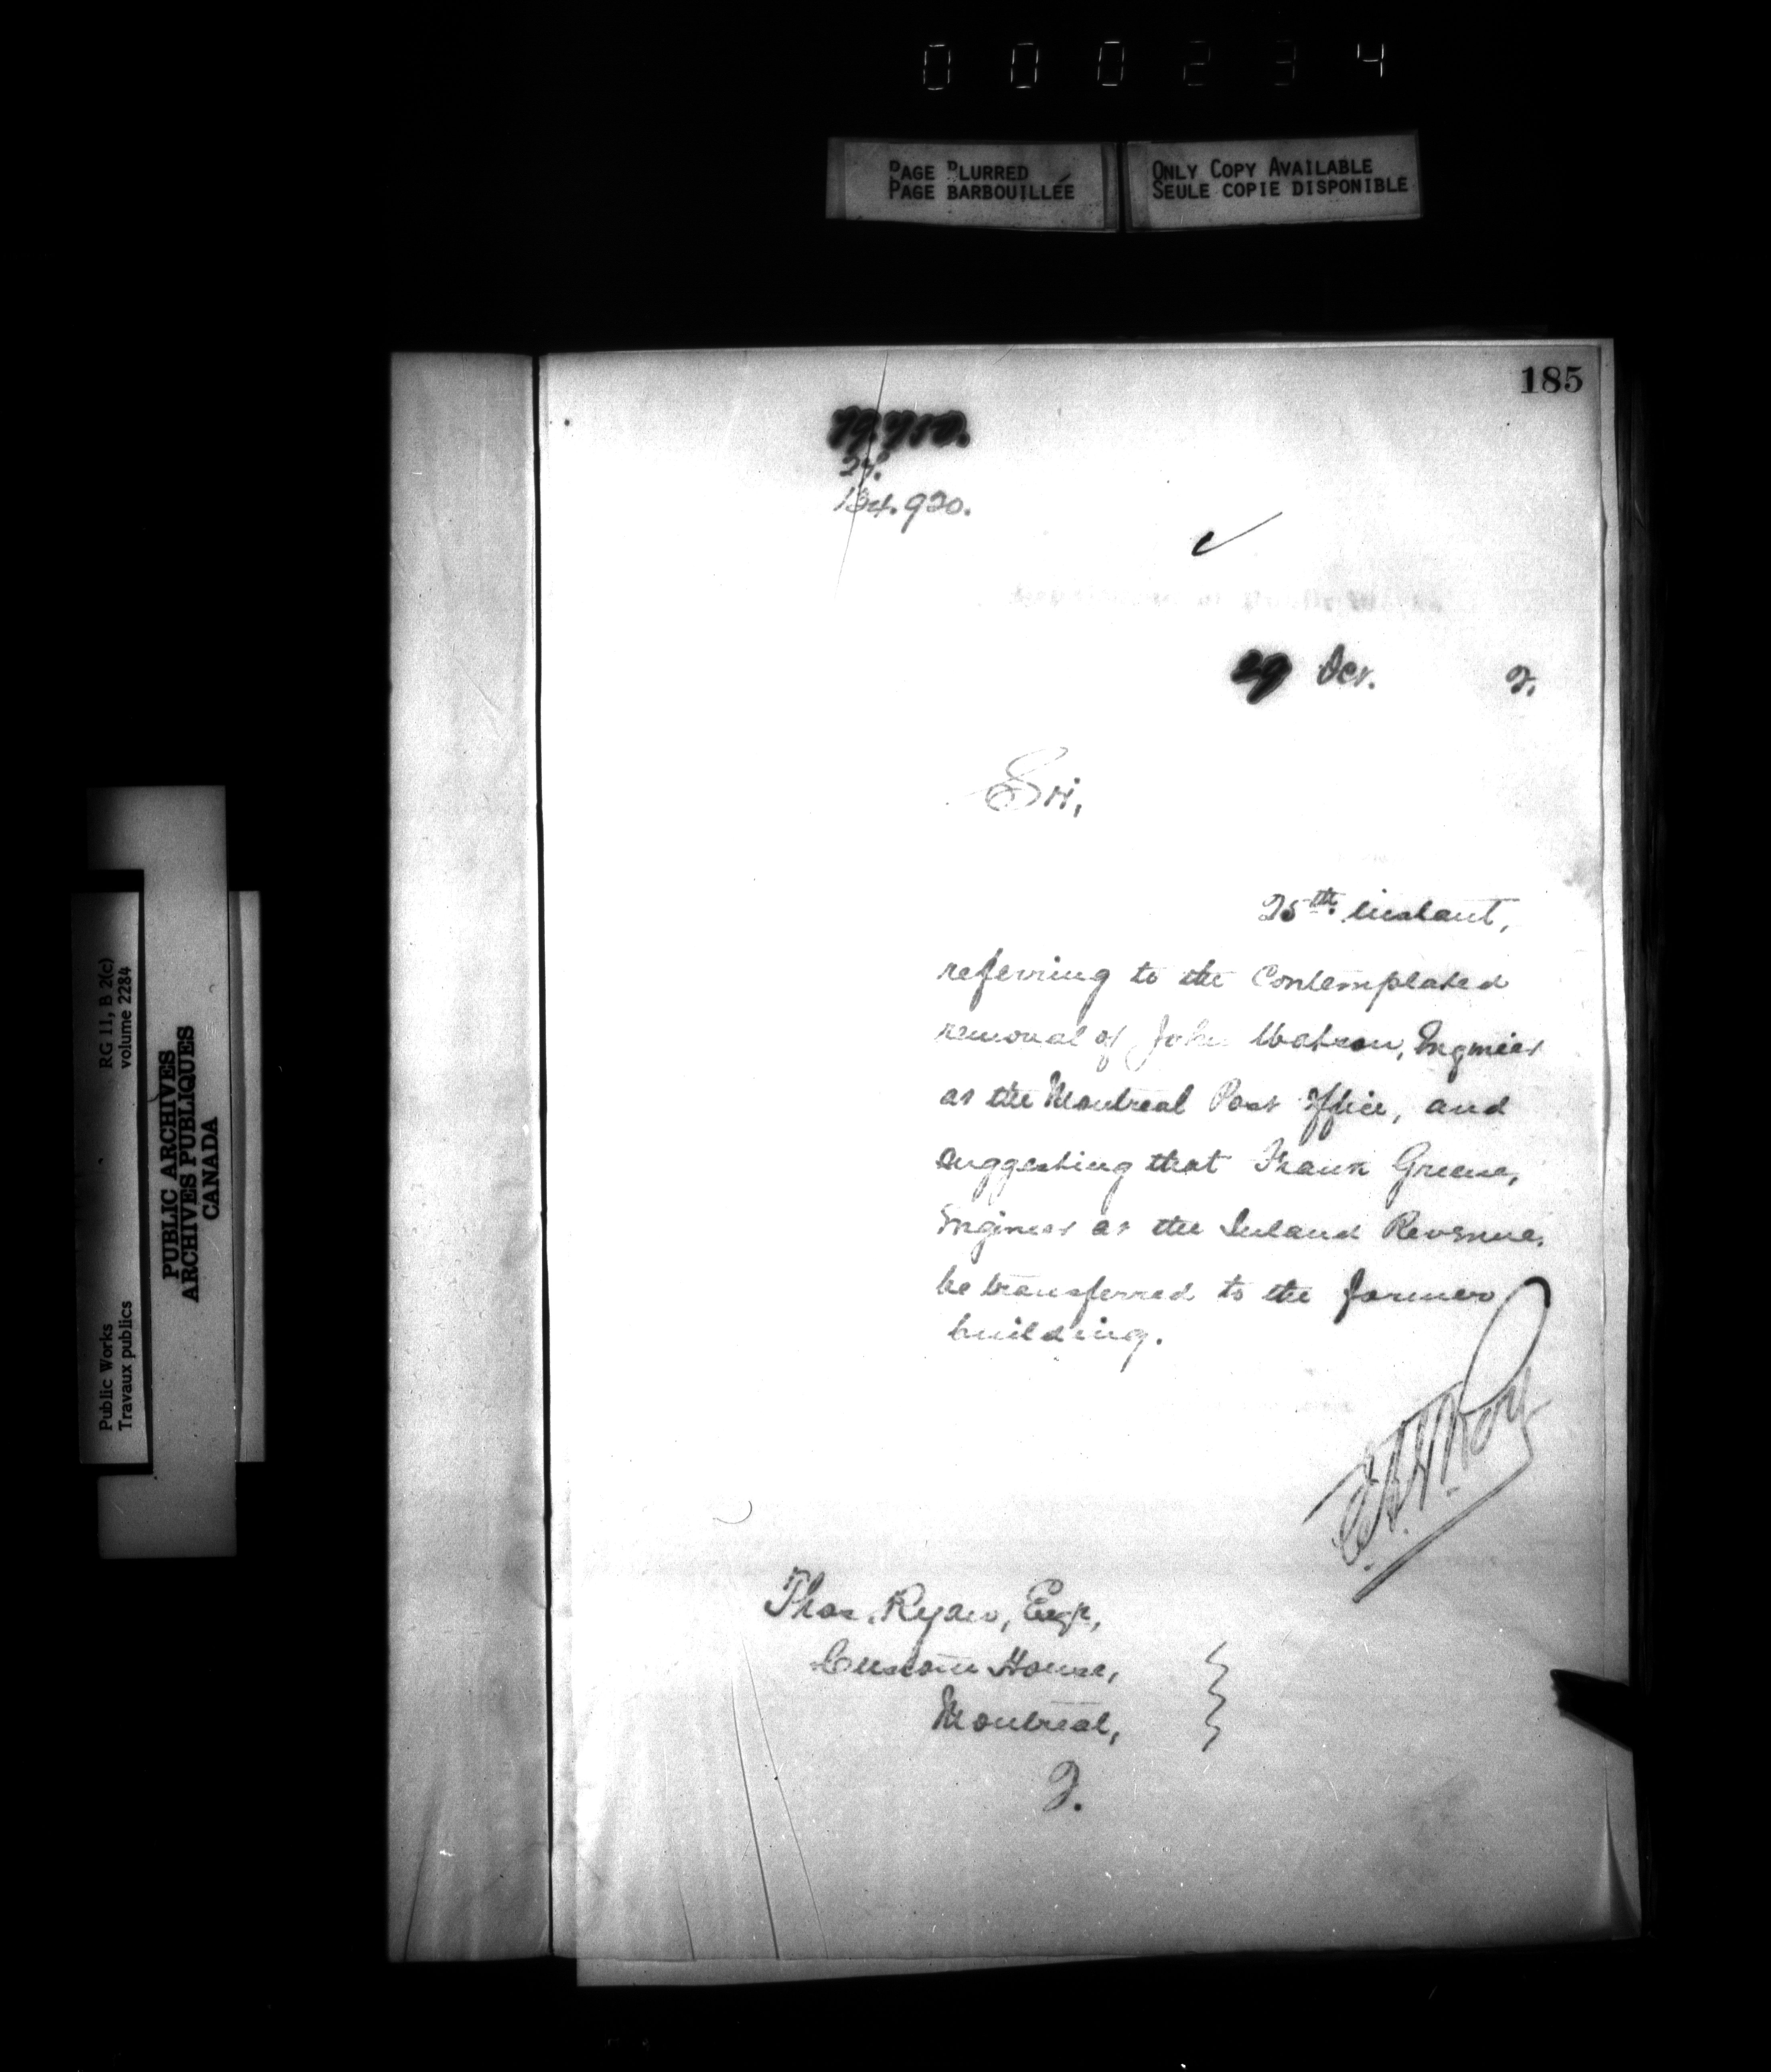 000234
PAGE BLURRED
PAGE BARBOUILLÉE
ONLY COPY AVAILABLE
SEULE COPIE DISPONIBLE
185
134.920.
29 Oct. 2.
Sir,
25th. instant,
referring to the contemplated
removal of John Watson, Engineer
at the Montreal Post Office, and
suggesting that Frank Greene,
Engineer at the Inland Revenue,
be transferred to the former
building.
E.F.E. Roy
Thos. Ryan, Esq.,
Custom House,
Montreal,
Q.
Public Works
Travaux publics
RG 11, B 2(c)
volume 2284
PUBLIC ARCHIVES
ARCHIVES PUBLIQUES
CANADA